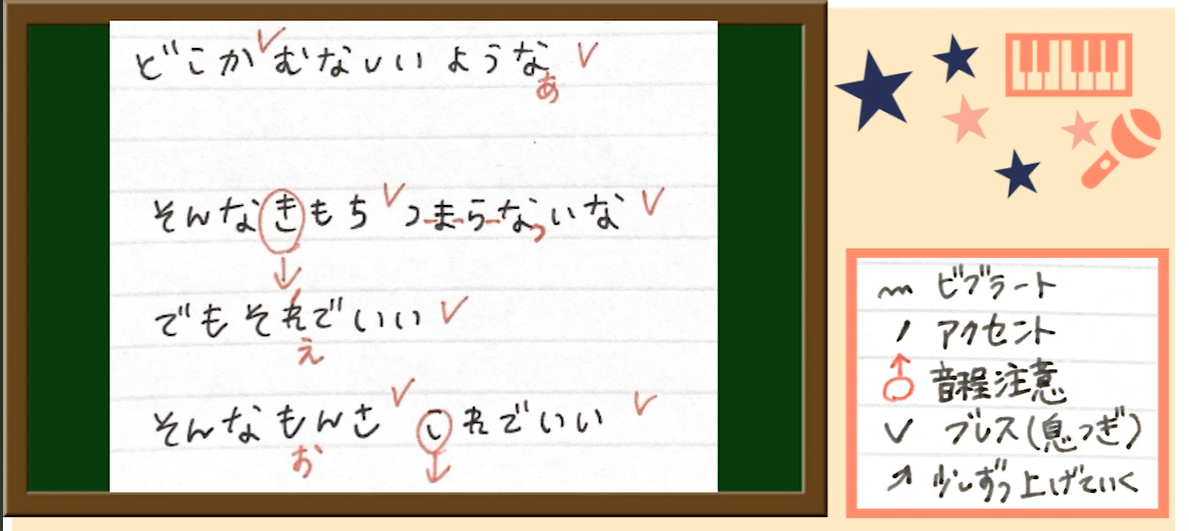 どこか むなしいような
あ
そんなきもち つまらないな
でもそれでいい
え
そんなもんさ これでいい
お
ビブラート
アクセント
音程注意
ブレス(息つぎ)
少しずつ上げていく